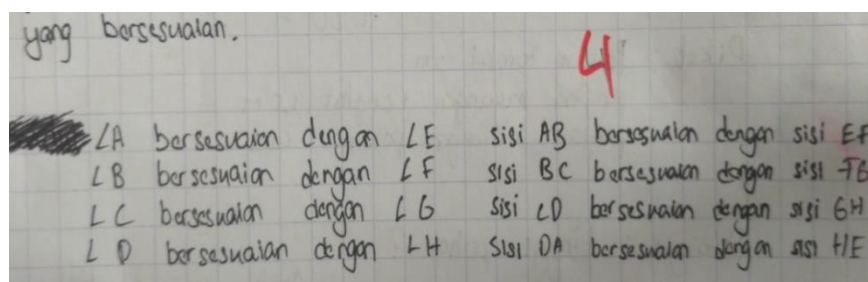 yang bersesuaian.
4
∠A bersesuaian dengan ∠E sisi AB bersesuaian dengan sisi EF
∠B bersesuaian dengan ∠F sisi BC bersesuaian dengan sisi FG
∠C bersesuaian dengan ∠G sisi CD bersesuaian dengan sisi GH
∠D bersesuaian dengan ∠H sisi DA bersesuaian dengan sisi HE